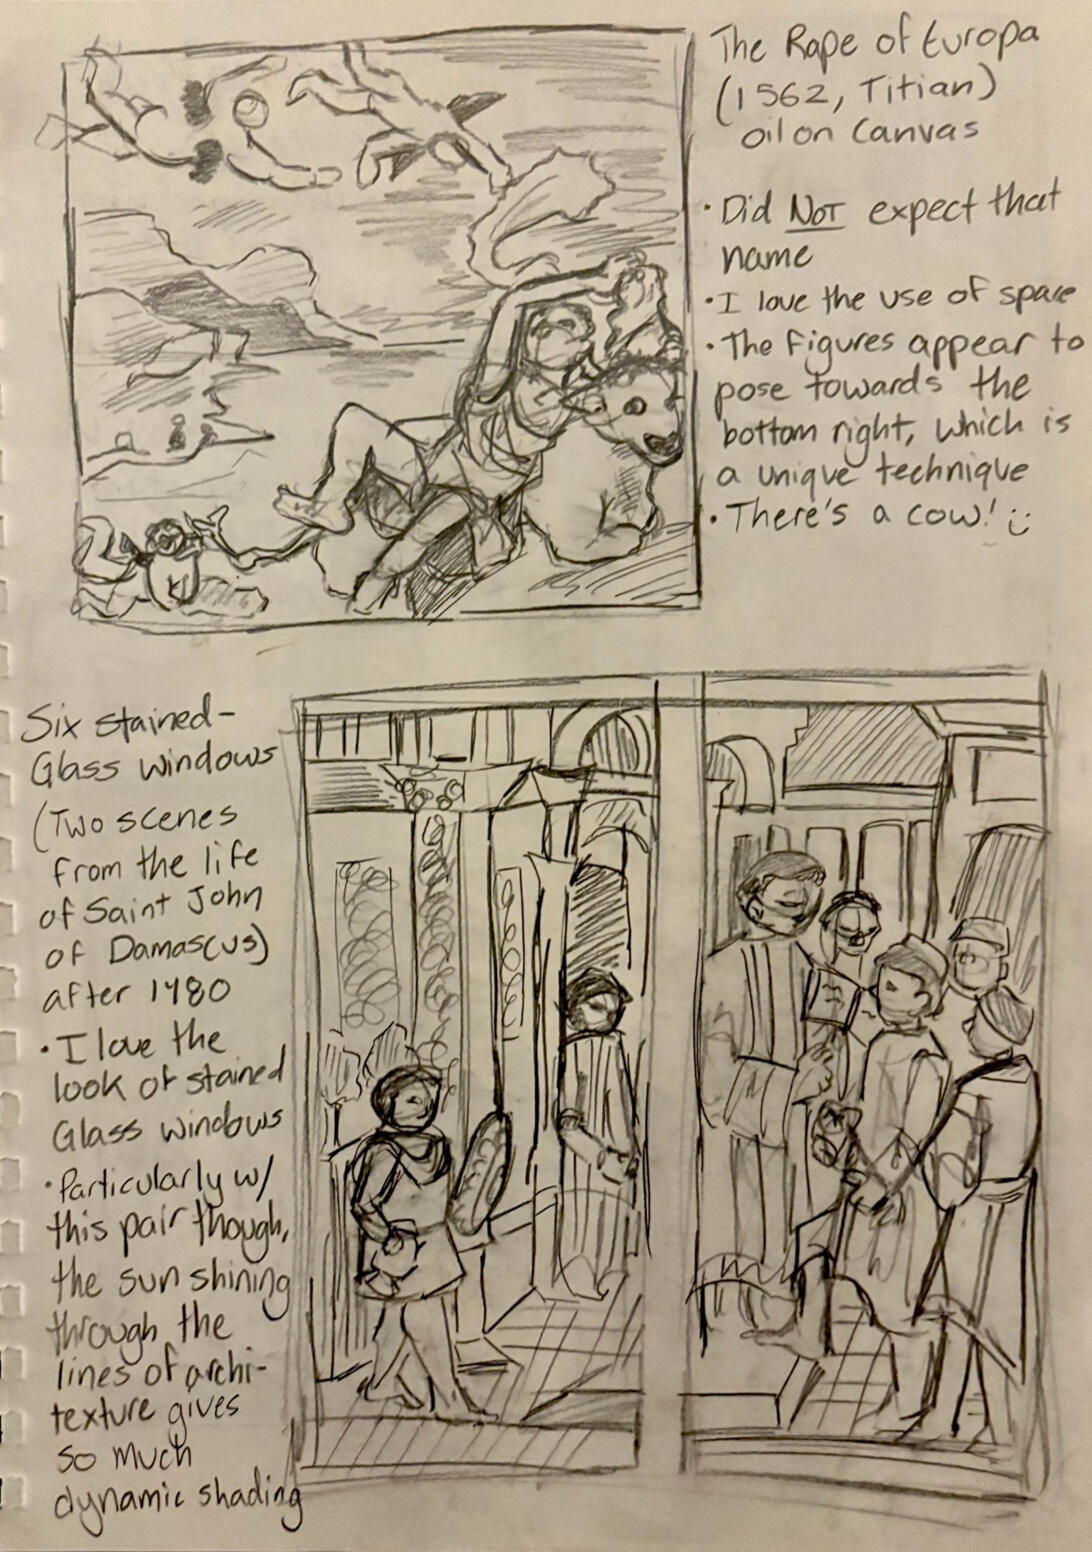 The Rape of Europa
(1562, Titian)
oil on Canvas
• Did NOT expect that
name
• I love the use of space
• The figures appear to
pose towards the
bottom right, which is
a unique technique
• There's a cow! :)
Six stained-
Glass windows
(Two scenes
from the life
of Saint John
of Damascus)
after 1480
• I love the
look of stained
Glass windows
• Particularly w/
this pair though,
the sun shining
through the
lines of archi-
texture gives
so much
dynamic shading